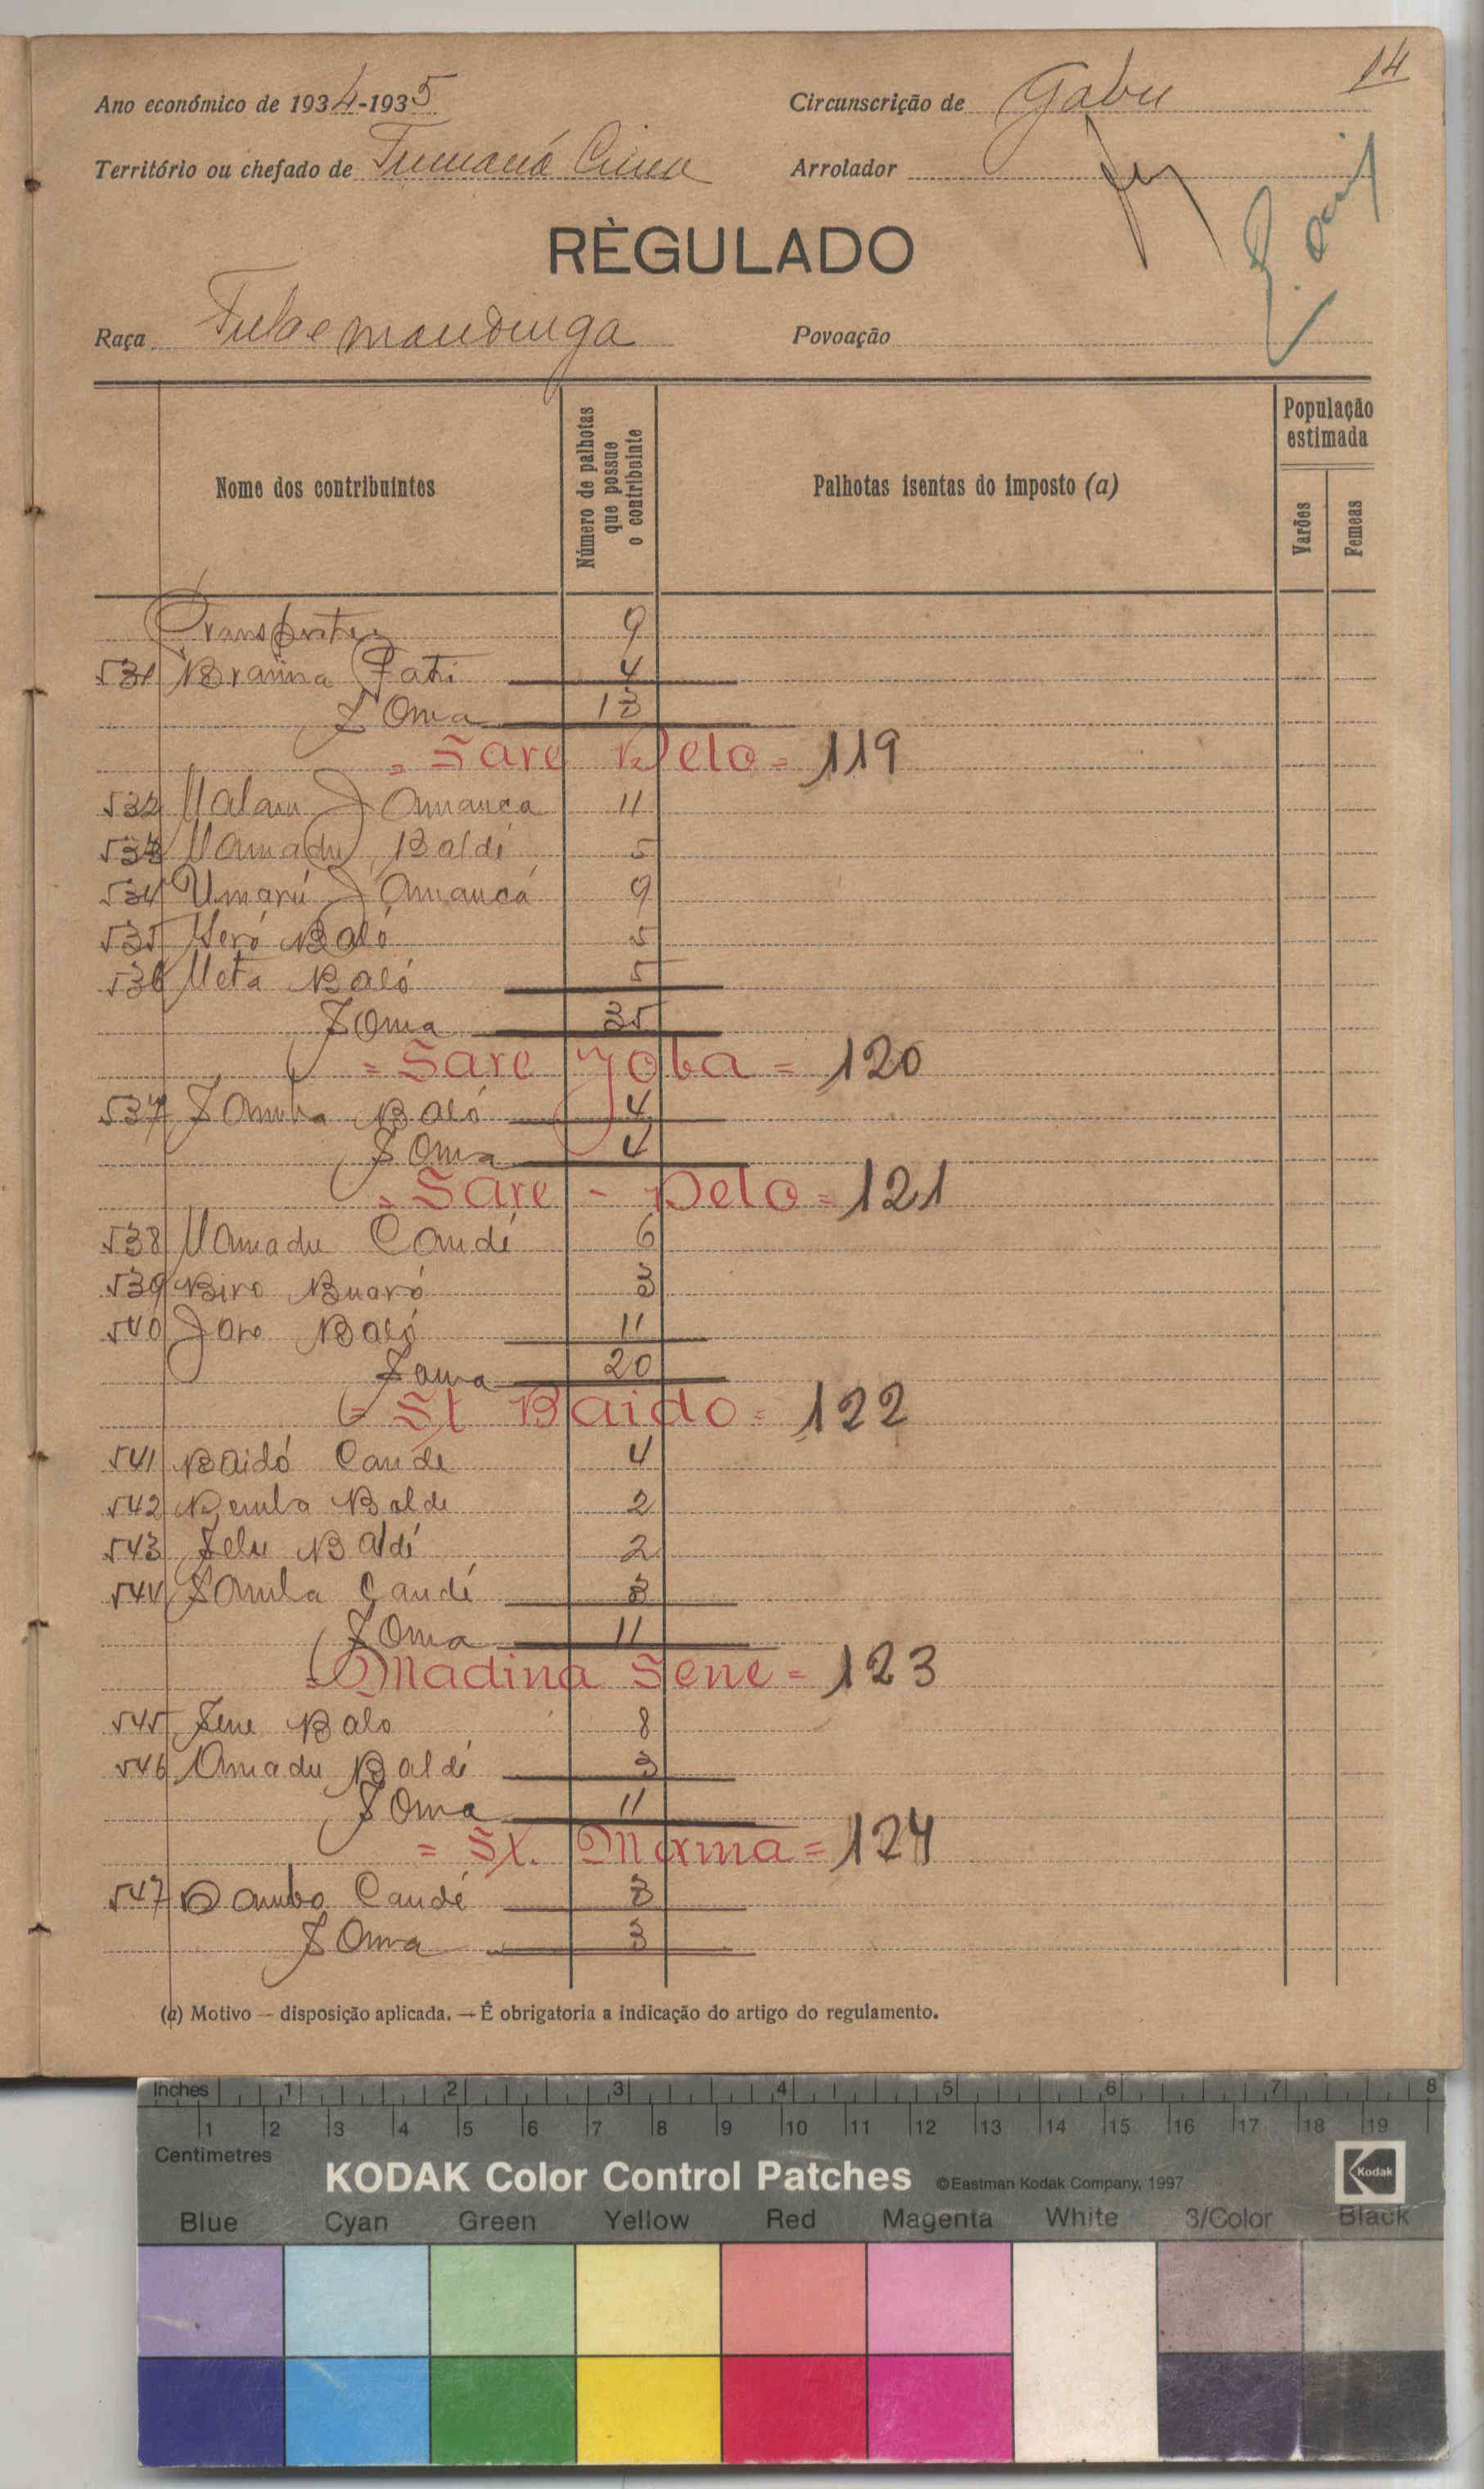 14
Ano económico de 1934-1935
Circunscrição de Gabu
Território ou chefado de Tumaná Cima
Arrolador
RÈGULADO
Raça Fula e mandinga
Povoação
Nome dos contribuintes
Número de palhotas que possue o contribuinte
Palhotas isentas do imposto (a)
População estimada
Varões
Femeas
Transporte 9
531 Braima Fati 4
Soma 13
= Sare Delo = 119
532 Malam Jamanca 11
533 Mamadu Baldé 5
534 Umarú Jamancá 9
535 Seró Baló 5
536 Meta Baló 5
Soma 35
= Sare Joba = 120
537 Samba Baló 4
Soma 4
= Sare - Delo = 121
538 Mamadu Candé 6
539 Biro Buaró 3
540 Jaro Baló 11
Soma 20
= St Baido = 122
541 Baidó Cande 4
542 Demba Balde 2
543 Selu Baldé 2
544 Samba Candé 3
Soma 11
= Madina Sene = 123
545 Sene Balo 8
546 Amadu Baldé 3
Soma 11
= St. Mama = 124
547 Dambo Candé 3
Soma 3
(a) Motivo — disposição aplicada. — É obrigatoria a indicação do artigo do regulamento.
Inches 1 2 3 4 5 6 7 8
1 2 3 4 5 6 7 8 9 10 11 12 13 14 15 16 17 18 19
Centimetres
KODAK Color Control Patches ©Eastman Kodak Company, 1997 Kodak
Blue Cyan Green Yellow Red Magenta White 3/Color Black